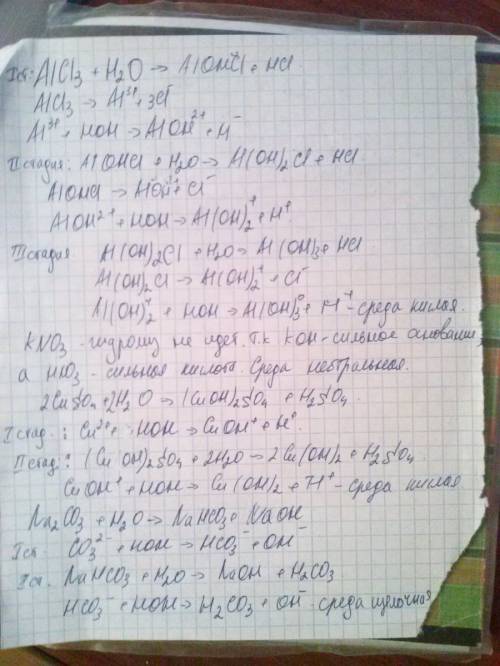 I ст. AlCl3 + H2O → AlOHCl + HCl
AlCl3 → Al³⁺ + 3Cl⁻
Al³⁺ + HOH → AlOH²⁺ + H⁻
II стадия: AlOHCl + H2O → Al(OH)2Cl + HCl
AlOHCl → AlOH²⁺ + Cl⁻
AlOH²⁺ + HOH → Al(OH)2⁺ + H⁺
III стадия Al(OH)2Cl + H2O → Al(OH)3 + HCl
Al(OH)2Cl → Al(OH)2⁺ + Cl⁻
Al(OH)2⁺ + HOH → Al(OH)3⁰ + H⁺ - среда кислая.
KNO3 - гидролиз не идет. т.к KOH - сильное основание,
а HNO3 - сильная кислота. Среда нейтральная.
2CuSO4 + 2H2O → (CuOH)2SO4 + H2SO4
I стад.: Cu²⁺ + HOH → CuOH⁺ + H⁺
II стад: (CuOH)2SO4 + 2H2O → 2Cu(OH)2 + H2SO4
CuOH⁺ + HOH → Cu(OH)2 + H⁺ - среда кислая
Na2CO3 + H2O → NaHCO3 + NaOH
I ст. CO3²⁻ + HOH → HCO3⁻ + OH⁻
II ст. NaHCO3 + H2O → NaOH + H2CO3
HCO3⁻ + HOH → H2CO3 + OH⁻ среда щелочная